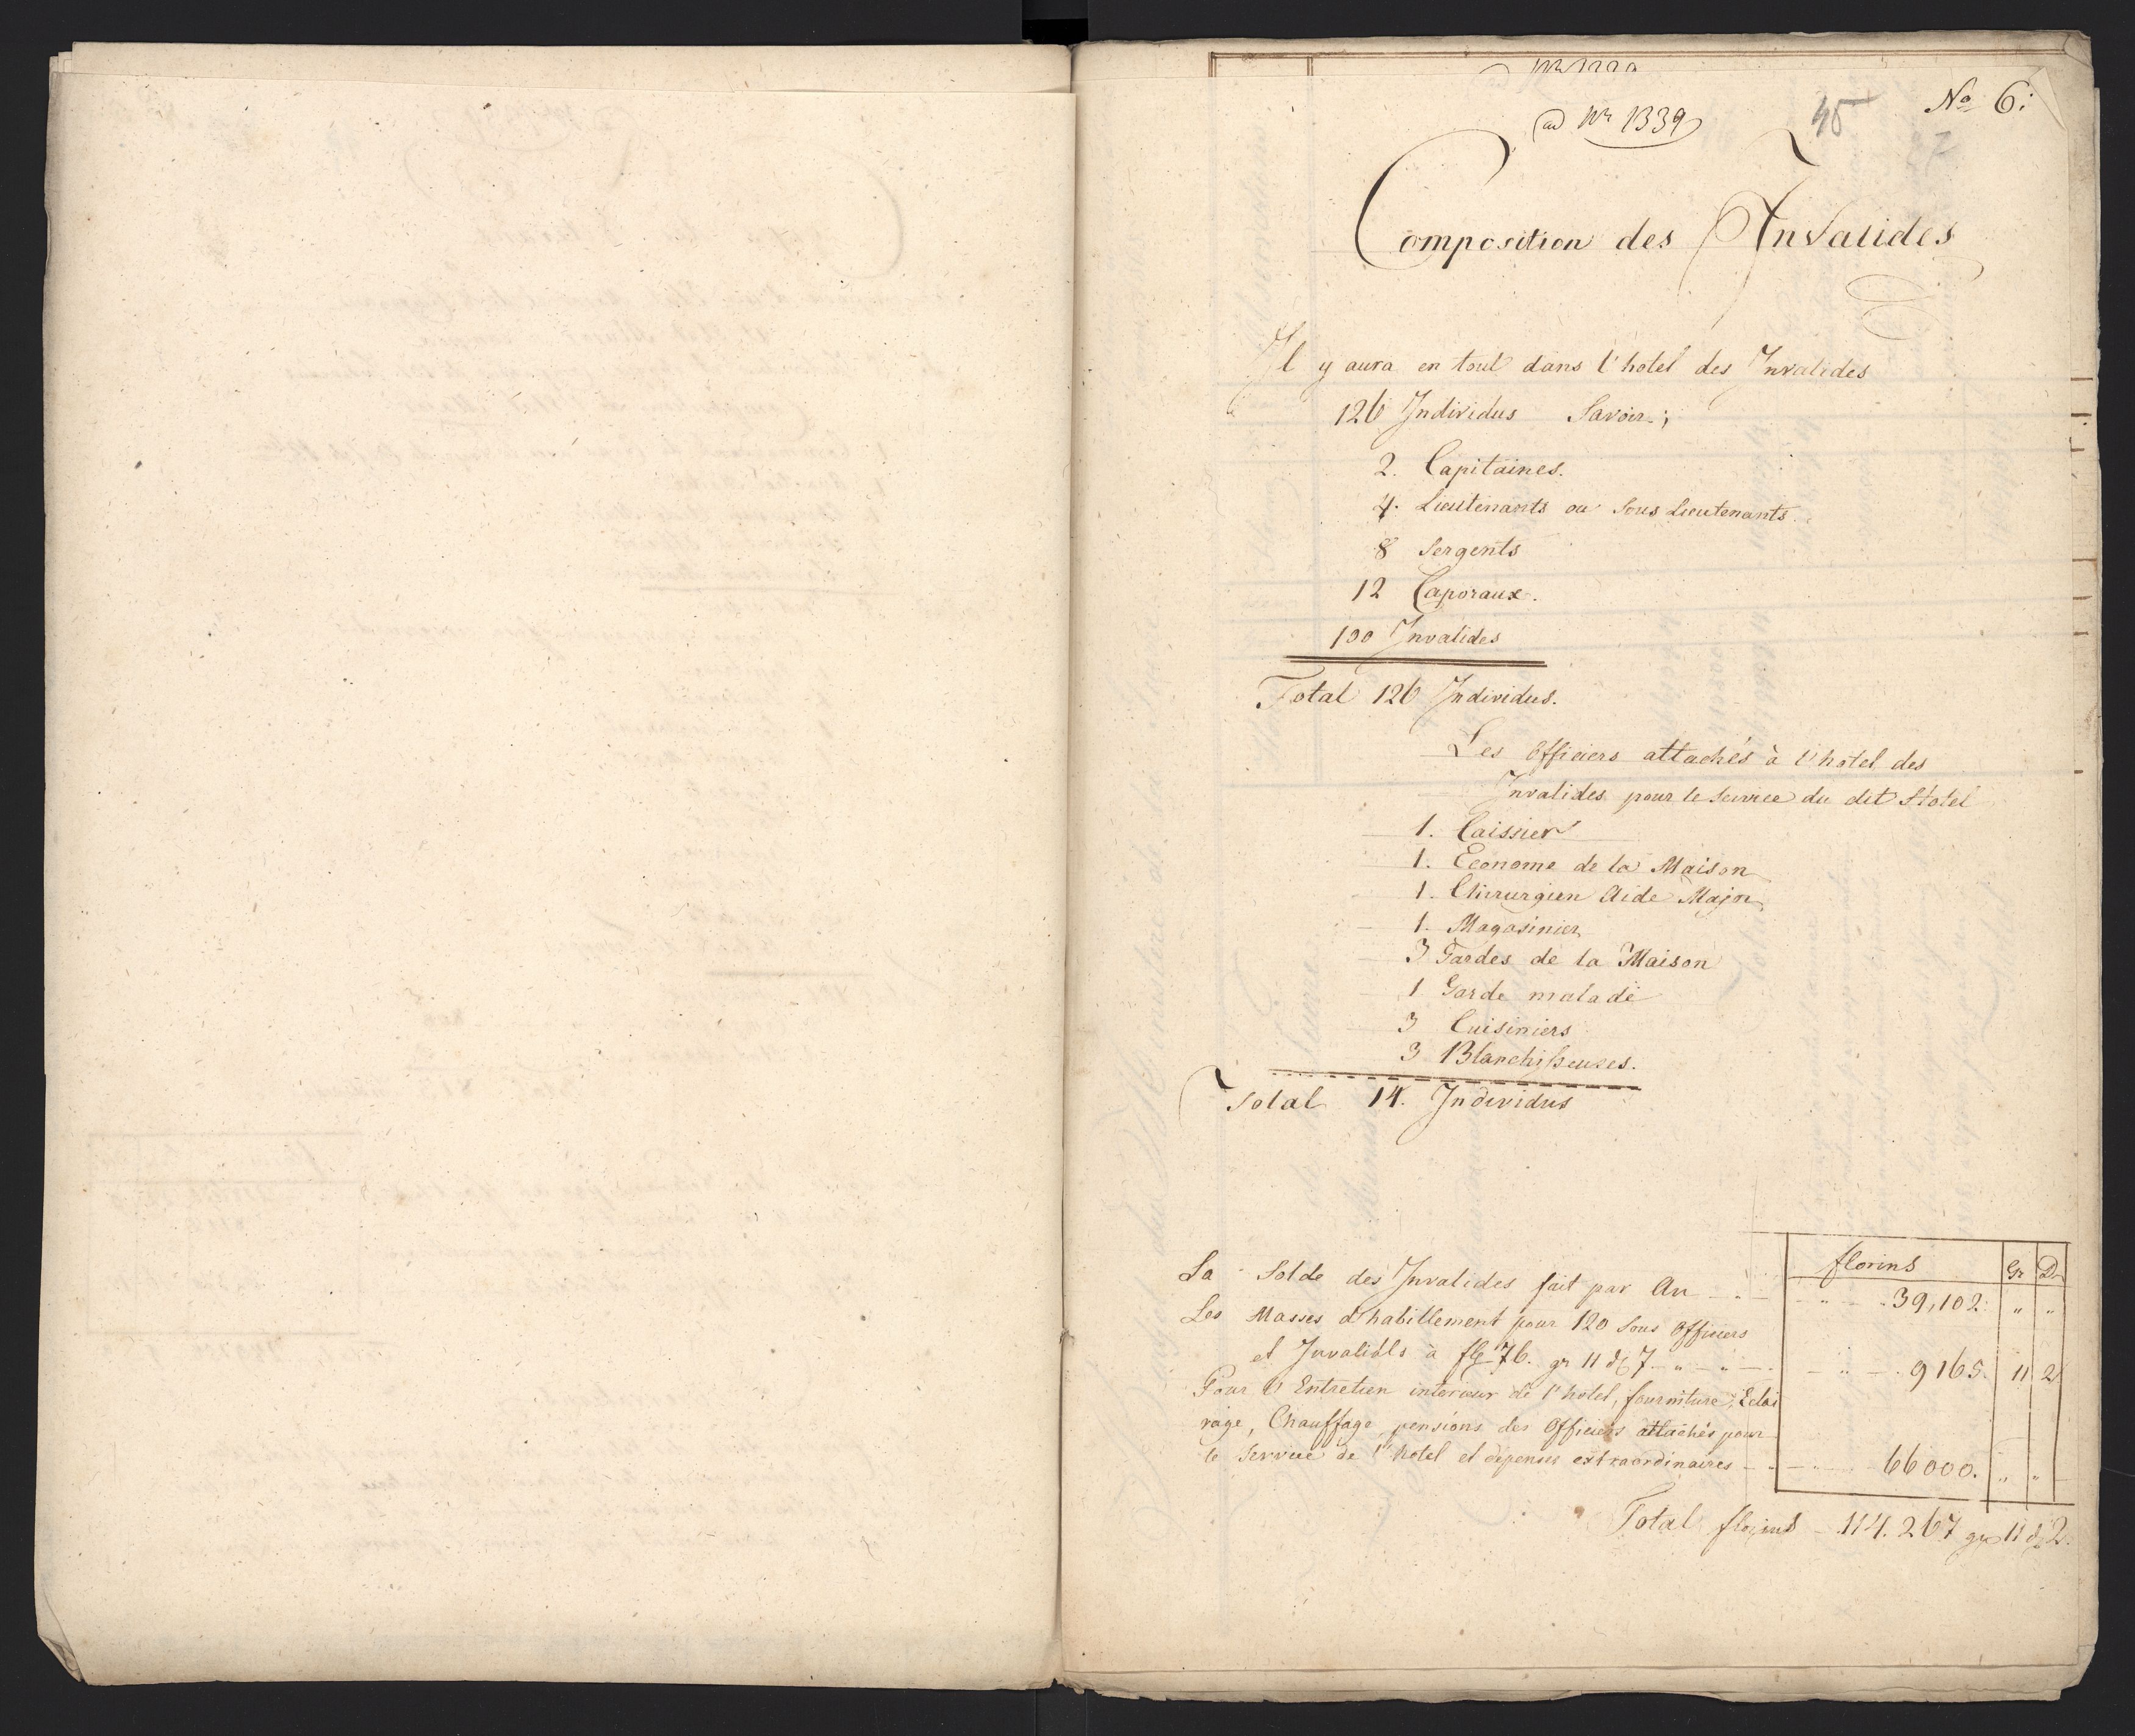 ad Nr 1339
45
No 6:
27
Composition des Invalides
Il y aura en tout dans l'hotel des Invalides
126 Individus Savoir;
2. Capitaines.
4. Lieutenants ou Sous Lieutenants.
8 Sergents
12 Caporaux.
100 Invalides
Total 126 Individus.
Les Officiers attachés à l'hotel des
Invalides pour le Service du dit Hotel
1. Caissier
1. Econome de la Maison
1. Chirurgien Aide Major
1. Magasinier
3 Gardes de la Maison
1 Garde malade
3 Cuisiniers
3 Blanchisseuses.
Total 14. Individus
florins Gr D
La Solde des Invalides fait par An 39,102. " "
Les Masses d'habillement pour 120 Sous Officiers
et Invalides à fl 76. gr 11 d 7 9165. 11 2
Pour l'Entretien interieur de l'hotel, fourniture, Eclai
rage, Chauffage, pensions des Officiers attachés pour
le Service de l'hotel et depenses extraordinaires 66000. " "
Total florins 114.267 gr 11 d 2.